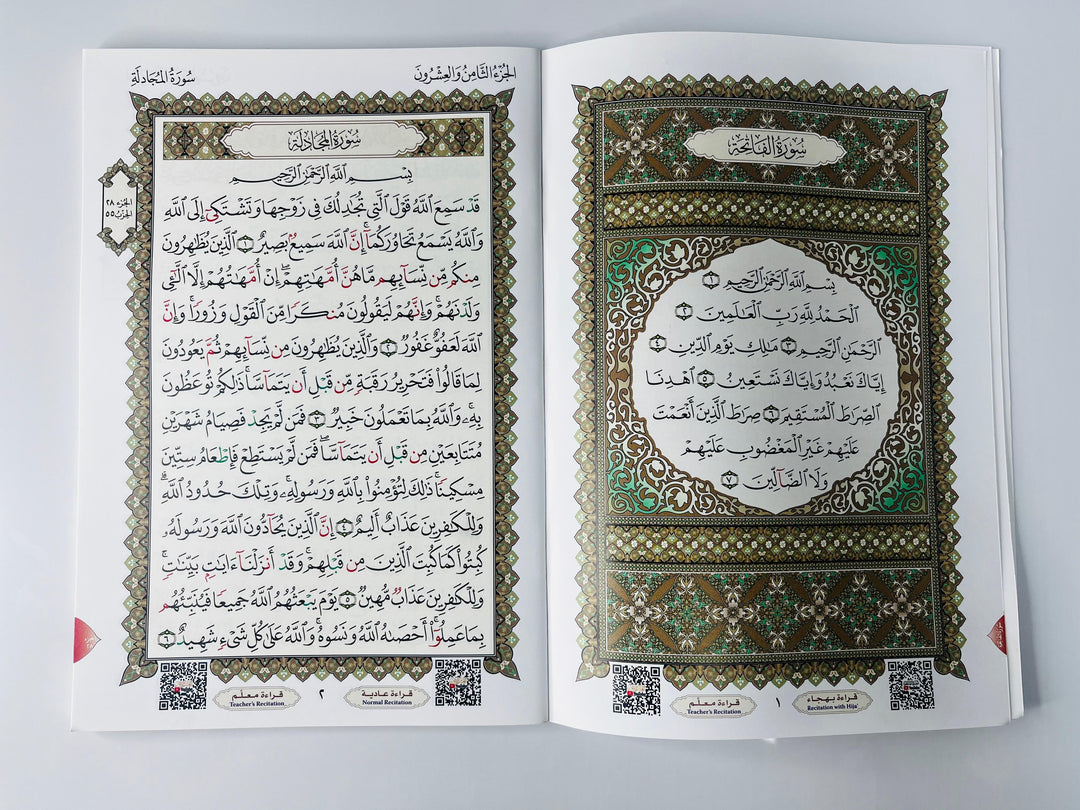 سُورَةُ الفَاتِحَةِ
بِسْمِ اللَّهِ الرَّحْمَٰنِ الرَّحِيمِ ١
الْحَمْدُ لِلَّهِ رَبِّ الْعَالَمِينَ ٢
الرَّحْمَٰنِ الرَّحِيمِ ٣ مَالِكِ يَوْمِ الدِّينِ ٤
إِيَّاكَ نَعْبُدُ وَإِيَّاكَ نَسْتَعِينُ ٥ اهْدِنَا
الصِّرَاطَ الْمُسْتَقِيمَ ٦ صِرَاطَ الَّذِينَ أَنْعَمْتَ
عَلَيْهِمْ غَيْرِ الْمَغْضُوبِ عَلَيْهِمْ
وَلَا الضَّالِّينَ ٧
قراءة بهجاء
Recitation with Hija'
١
قراءة معلّم
Teacher's Recitation
الجُزْءُ الثَّامِنُ وَالعِشْرُونَ
سُورَةُ المُجَادلَةِ
سُورَةُ المُجَادلَةِ
بِسْمِ اللَّهِ الرَّحْمَٰنِ الرَّحِيمِ
قَدْ سَمِعَ اللَّهُ قَوْلَ الَّتِي تُجَادِلُكَ فِي زَوْجِهَا وَتَشْتَكِي إِلَى اللَّهِ
وَاللَّهُ يَسْمَعُ تَحَاوُرَكُمَا إِنَّ اللَّهَ سَمِيعٌ بَصِيرٌ ١ الَّذِينَ يُظَاهِرُونَ
مِنكُم مِّن نِّسَائِهِم مَّا هُنَّ أُمَّهَاتِهِمْ إِنْ أُمَّهَاتُهُمْ إِلَّا اللَّائِي
وَلَدْنَهُمْ وَإِنَّهُمْ لَيَقُولُونَ مُنكَرًا مِّنَ الْقَوْلِ وَزُورًا وَإِنَّ
اللَّهَ لَعَفُوٌّ غَفُورٌ ٢ وَالَّذِينَ يُظَاهِرُونَ مِن نِّسَائِهِمْ ثُمَّ يَعُودُونَ
لِمَا قَالُوا فَتَحْرِيرُ رَقَبَةٍ مِّن قَبْلِ أَن يَتَمَاسَّا ذَٰلِكُمْ تُوعَظُونَ
بِهِ وَاللَّهُ بِمَا تَعْمَلُونَ خَبِيرٌ ٣ فَمَن لَّمْ يَجِدْ فَصِيَامُ شَهْرَيْنِ
مُتَتَابِعَيْنِ مِن قَبْلِ أَن يَتَمَاسَّا فَمَن لَّمْ يَسْتَطِعْ فَإِطْعَامُ سِتِّينَ
مِسْكِينًا ذَٰلِكَ لِتُؤْمِنُوا بِاللَّهِ وَرَسُولِهِ وَتِلْكَ حُدُودُ اللَّهِ
وَلِلْكَافِرِينَ عَذَابٌ أَلِيمٌ ٤ إِنَّ الَّذِينَ يُحَادُّونَ اللَّهَ وَرَسُولَهُ
كُبِتُوا كَمَا كُبِتَ الَّذِينَ مِن قَبْلِهِمْ وَقَدْ أَنزَلْنَا ءَايَاتٍ بَيِّنَاتٍ
وَلِلْكَافِرِينَ عَذَابٌ مُّهِينٌ ٥ يَوْمَ يَبْعَثُهُمُ اللَّهُ جَمِيعًا فَيُنَبِّئُهُم
بِمَا عَمِلُوا أَحْصَاهُ اللَّهُ وَنَسُوهُ وَاللَّهُ عَلَىٰ كُلِّ شَيْءٍ شَهِيدٌ ٦
الجزء ٢٨
الحزب ٥٥
قراءة عادية
Normal Recitation
٢
قراءة معلّم
Teacher's Recitation